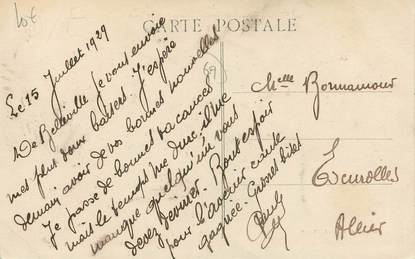 Lot
CARTE POSTALE
Le 15 Juillet 1929
De Belleville je vous envoie
mes plus doux baisers. J'espère
demain avoir de vos bonnes nouvelles
Je passe de bonnes vacances
mais le temps me dure, il me
manque quelqu'un vous
devez deviner. Bon espoir
pour l'avenir cause
gagnée. Grosses bises
Paule
89
Melle Bonnamour
Escurolles
Allier